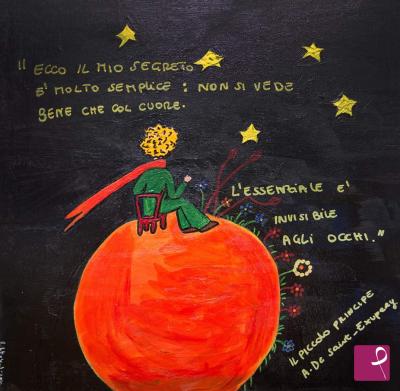 "ECCO IL MIO SEGRETO
E' MOLTO SEMPLICE: NON SI VEDE
BENE CHE COL CUORE.
L'ESSENZIALE E'
INVISIBILE
AGLI OCCHI."
IL PICCOLO PRINCIPE
A. De Saint-Exupery